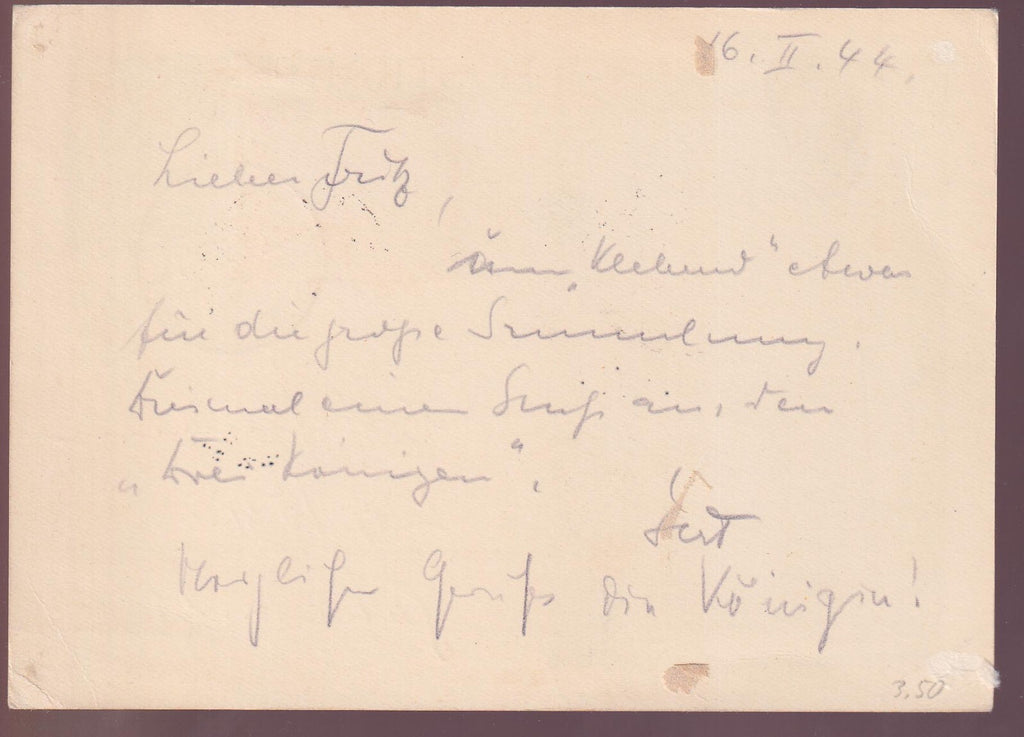 16. II. 44.
Lieber Fritz,
"Klebend" etwas
für die große Sammlung.
Diesmal einen Gruß aus den
„Drei Königen“.
Herzliche Grüße die Königin!
3.50